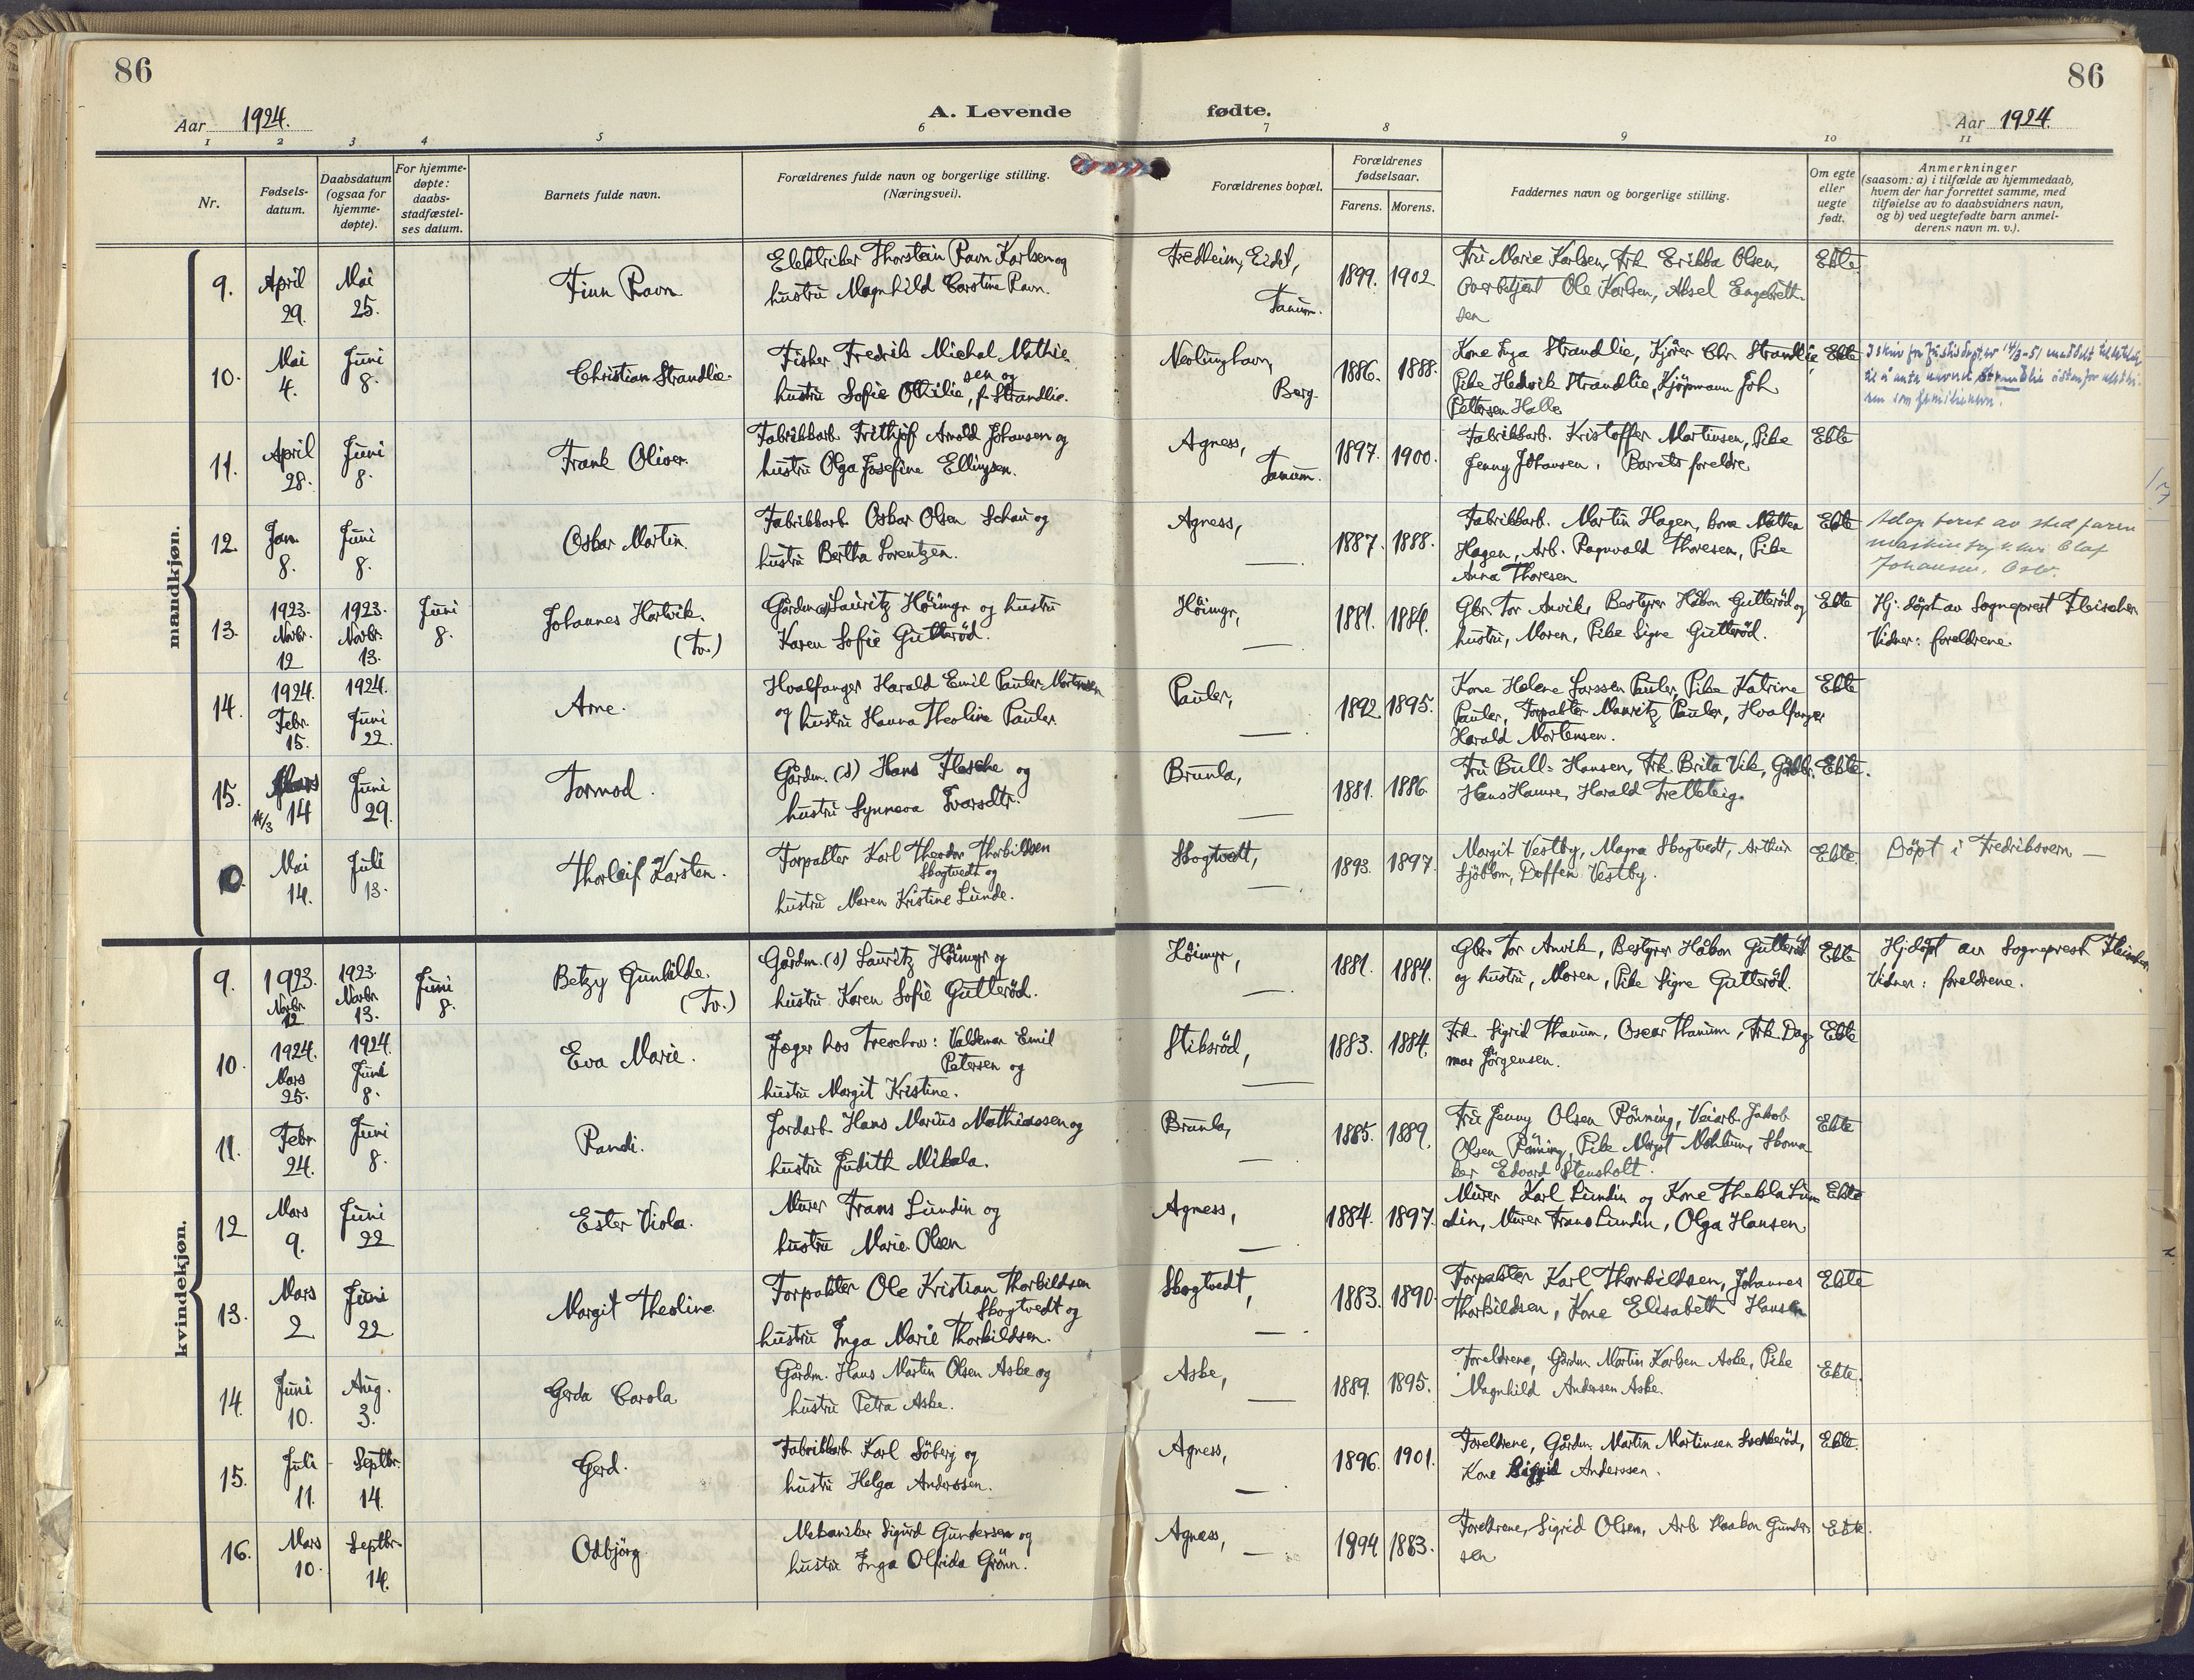 86
86
Aar 1924.
A. Levende
fødte.
Aar 1924.
1 2 3 4 5 6 7 8 9 10 11
Nr.
Fødsels-
datum.
Daabsdatum
(ogsaa for
hjemme-
døpte).
For hjemme-
døpte:
daabs-
stadfæstel-
ses datum.
Barnets fulde navn.
Forældrenes fulde navn og borgerlige stilling.
(Næringsvei).
Forældrenes bopæl.
Forældrenes
fødselsaar.
Farens. Morens.
Faddernes navn og borgerlige stilling.
Om egte
eller
uegte
født.
Anmerkninger
(saasom: a) i tilfælde av hjemmedaab,
hvem der har forrettet samme, med
tilføielse av to daabsvidners navn,
og b) ved uegtefødte barn anmel-
derens navn m. v.).
mandkjøn.
9.
April
29.
Mai
25.
Finn Ravn
Elektriker Thorstein Ravn Karlsen og
hustru Magnhild Carstine Ravn.
Fredheim, Eidet,
Tanum.
1899. 1902
Fru Marie Karlsen, Frk. Erikka Olsen,
Overbetjent Ole Karlsen, Aksel Engebrett-
sen
Ekte
10.
Mai
4.
Juni
8.
Christian Strandlie.
Fisker Fredrik Michal Mathie-
sen og
hustru Sofie Othilie, f. Strandlie.
Nevlunghavn,
Berg.
1886. 1888.
Kone Inga Strandlie, Kjører Chr. Strandlie,
Pike Hedvik Strandlie, Kjöpmann Joh
Pettersen Halle
Ekte
I skriv fra Justisdept. av 14/3-51 meddelt tillatelse
til å anta navnet Strandlie
som familienavn.
11.
April
28.
Juni
8.
Frank Oliver.
Fabrikkarb. Frithjof Arnold Johansen og
hustru Olga Josefine Ellingsen.
Agness,
Tanum.
1897. 1900.
Fabrikkarb. Kristoffer Martinsen, Pike
Jenny Johansen, Barnets foreldre
Ekte
12.
Jan.
8.
Juni
8.
Oskar Martin.
Fabrikkarb. Oskar Olsen Schau og
hustru Bertha Lorentzen.
Agness,
—
1887. 1888.
Fabrikkarb. Martin Hagen, kone Mathea
Hagen, Arb. Ragnvald Thoresen, Pike
Anna Thoresen
Ekte
Adoptert av stedfaren
Olaf
Johansen, Oslo.
13.
1923.
Novbr.
12
1923.
Novbr.
13.
Juni
8.
Johannes Hartvik.
(Tv.)
Gårdm. (s) Lauritz Höimyr og hustru
Karen Sofie Gutteröd.
Höimyr,
—
1881. 1884.
Gbr. Tor Anvik, Bestyrer Håkon Gutteröd og
hustru, Maren, Pike Signe Gutteröd.
Ekte
Hj. döpt av Sogneprest Fleischer
Vidner: foreldrene.
14.
1924.
Febr.
15.
1924.
Juni
22.
Arne.
Hvalfanger Harald Emil Pauler-Mortensen
og hustru Hanna Theoline Pauler
Pauler,
—
1892 1895.
Kone Helene Larssen Pauler, Pike Katrine
Pauler, Forpakter Mauritz Pauler, Hvalfanger
Harald Mortensen.
Ekte
15.
Mars
14/3 14
Juni
29.
Tormod.
Gårdm. (s) Hans Flesche og
hustru Synneva Ivarsdtr.
Brunla,
—
1881. 1886.
Fru Bull-Hansen, Frk. Brita Vik, Gårdbr.
Hans Hamre, Harald Tretteteig.
Ekte.
Mai
14.
Juli
13.
Thorleif Karsten.
Forpakter Karl Theodor Thorkildsen
Skogtvedt og
hustru Maren Kristine Lunde.
Skogtvedt,
—
1893. 1897
Margit Vestby, Magna Skogtvedt, Arthur
Sjöblom, Doffen Vestby.
Ekte.
Döpt i Fredriksvern —
kvindekjøn.
9.
1923.
Novbr.
12
1923.
Novbr.
13.
Juni
8.
Betzy Gunhilde.
(Tv.)
Gårdm. (s) Lauritz Höimyr og
hustru Karen Sofie Gutteröd.
Höimyr,
—
1881. 1884.
Gbr. Tor Anvik, Bestyrer Håkon Gutteröd
og hustru, Maren, Pike Signe Gutteröd.
Ekte
Hj. döpt av Sogneprest Fleischer
Vidner: foreldrene.
10.
1924.
Mars
25.
1924.
Juni
8.
Eva Marie.
Jæger hos Treschow: Valdemar Emil
Petersen og
hustru Margit Kristine.
Stiksröd,
—
1883. 1884.
Frk. Sigrid Thanum, Oscar Thanum, Frk. Dag-
mar Jörgensen.
Ekte
11.
Febr
24.
Juni
8.
Randi.
Jordarb. Hans Marius Mathiassen og
hustru Judith Mikala.
Brunla,
—
1885. 1889.
Fru Jenny Olsen Rönning, Veiarb. Jakob
Olsen Rönning, Pike Margit Moklum, Skoma-
ker Edvard Stensholt.
Ekte
12
Mars
9.
Juni
22
Ester Viola.
Murer Frans Lundin og
hustru Marie Olsen
Agness,
—
1884. 1897.
Murer Karl Lundin og Kone Thekla Lun-
din, Murer Frans Lundin, Olga Hansen
Ekte
13.
Mars
2
Juni
22
Margit Theoline
Forpakter Ole Kristian Thorkildsen
Skogtvedt og
hustru Inga Marie Thorkildsen.
Skogtvedt,
—
1883. 1890.
Forpakter Karl Thorkildsen, Johannes
Thorkildsen, Kone Elisabeth Hansen
Ekte
14.
Juni
10.
Aug.
3.
Gerda Carola
Gårdm. Hans Martin Olsen Aske og
hustru Petra Aske.
Aske,
—
1889. 1895.
Foreldrene, Gårdm. Martin Karlsen Aske, Pike
Magnhild Andersen Aske.
Ekte.
15.
Juli
11.
Septbr.
14.
Gerd.
Fabrikkarb. Karl Söberg og
hustru Helga Anderssen.
Agness,
—
1896. 1901.
Foreldrene, Gårdm. Martin Martinsen
Kone Anderssen.
Ekte.
16.
Mars
10.
Septbr.
14.
Odbjörg
Mekaniker Sigurd Gundersen og
hustru Inga Olfrida Grönn.
Agness,
—
1894 1883.
Foreldrene, Sigrid Olsen, Arb. Haakon Gunder-
sen
Ekte.